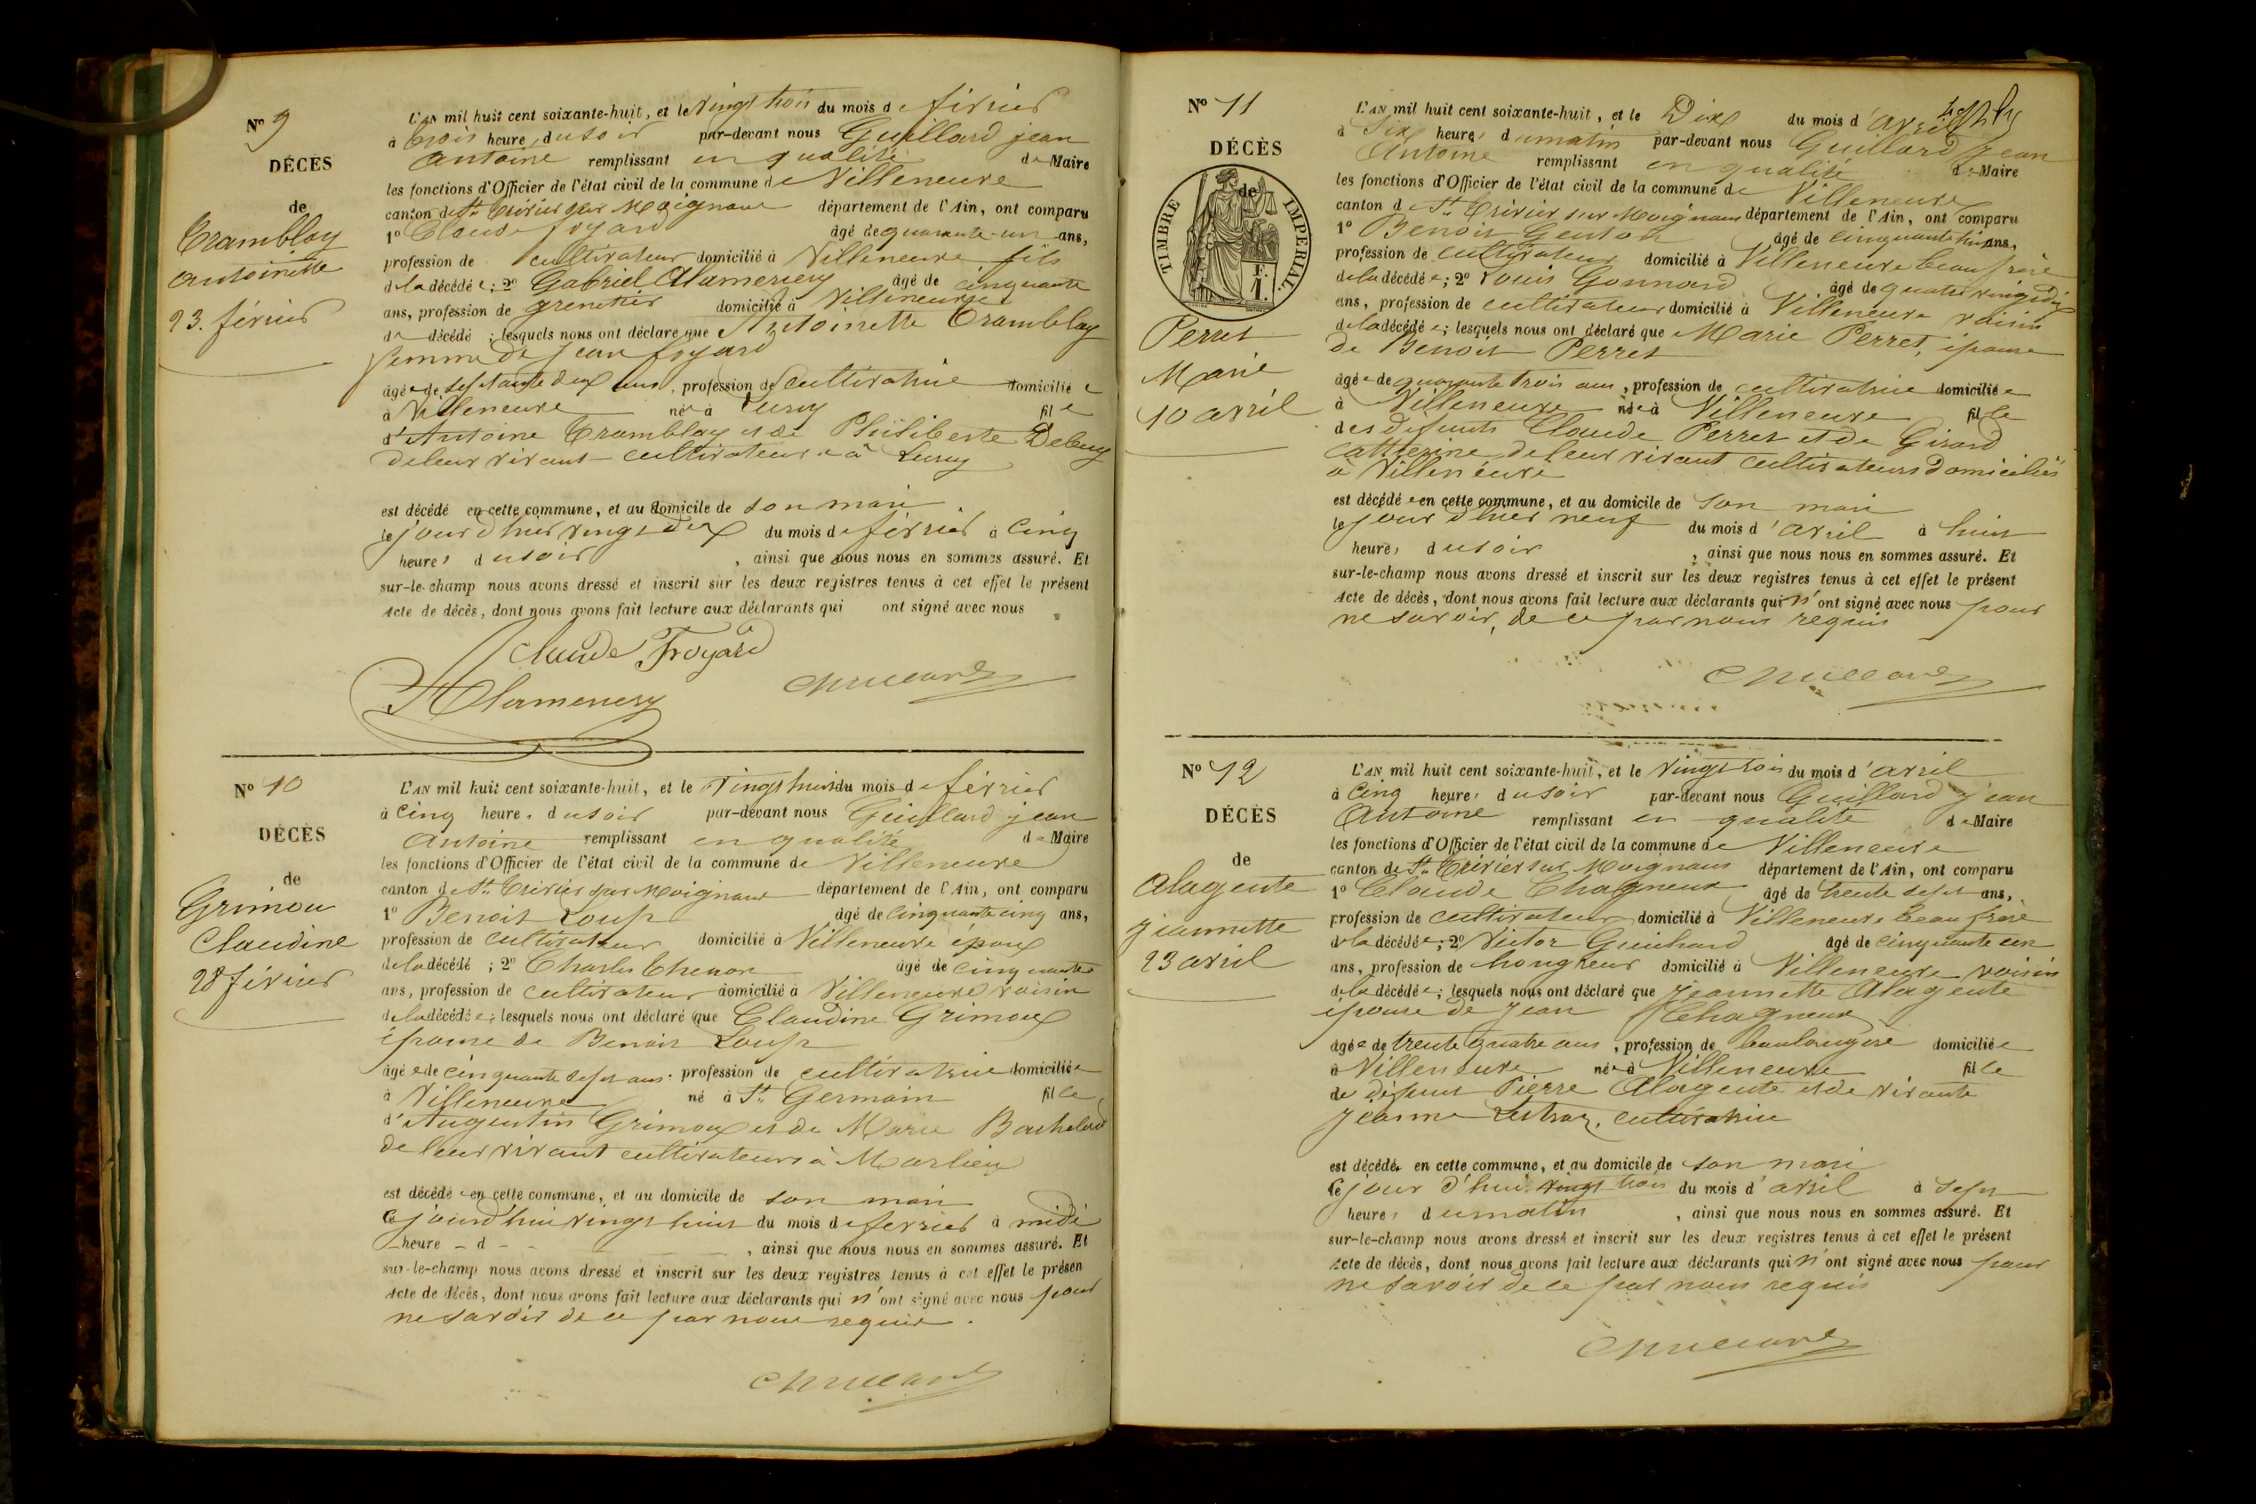 N° 9
DÉCÈS
de
Tramblay
antoinette
23. février
L'AN mil huit cent soixante-huit, et le vingt trois du mois de février
à trois heure du soir par-devant nous Guillard jean
antoine remplissant en qualité de Maire
les fonctions d'Officier de l'état civil de la commune de Villeneuve
canton de St. Trivier sur Moignans département de l'Ain, ont comparu
1° Claude froyard âgé de quarante-un ans,
profession de cultivateur domicilié à Villeneuve fils
de la décédée; 2° Gabriel Alamercery âgé de cinquante
ans, profession de grenetier domicilié à Villeneuve
de décédé ; lesquels nous ont déclaré que Antoinette Tramblay
femme de jean froyard
âgée de septante deux ans, profession de cultivatrice domiciliée
à Villeneuve née à Lurcy fille
d'Antoine Tramblay et de Philiberte
de leur vivant cultivateurs à Lurcy
est décédé en cette commune, et au domicile de son mari
le jour d'hier vingt deux du mois de février à cinq
heures du soir , ainsi que nous nous en sommes assuré. Et
sur-le-champ nous avons dressé et inscrit sur les deux registres tenus à cet effet le présent
acte de décès, dont nous avons fait lecture aux déclarants qui ont signé avec nous
Claude Froyard
Alamercery
N° 10
DÉCÈS
de
Grimou
Claudine
28 février
L'AN mil huit cent soixante-huit, et le vingt huit du mois de février
à cinq heures du soir par-devant nous Guillard jean
antoine remplissant en qualité de Maire
les fonctions d'Officier de l'état civil de la commune de Villeneuve
canton de St. Trivier sur Moignans département de l'Ain, ont comparu
1° Benoit Loup âgé de cinquante cinq ans,
profession de cultivateur domicilié à Villeneuve époux
de la décédé ; 2° Charles Chenon âgé de cinquante
ans, profession de cultivateur domicilié à Villeneuve voisin
de la décédée; lesquels nous ont déclaré que Claudine Grimoux
épouse de Benoit Loup
âgée de cinquante sept ans. profession de cultivatrice domiciliée
à Villeneuve né à St. Germain fille
d'Augustin Grimoux et de Marie Bachelard
de leur vivant cultivateurs à Marlieu
est décédée en cette commune, et au domicile de son mari
ce jourd'hui vingt huit du mois de fevrier à midi
heure - d - , ainsi que nous nous en sommes assuré. Et
sur-le-champ nous avons dressé et inscrit sur les deux registres tenus à cet effet le présen
acte de décès, dont nous avons fait lecture aux déclarants qui n'ont signé avec nous pour
ne savoir de ce par nous requis.
N° 11
DÉCÈS
de
TIMBRE IMPERIAL
F. 1.
Perret
Marie
10 avril
L'AN mil huit cent soixante-huit, et le Dix du mois d'avril
à Six heures du matin par-devant nous Guillard Jean
Antoine remplissant en qualité de Maire
les fonctions d'Officier de l'état civil de la commune de Villeneuve
canton de St. Trivier sur Moignans département de l'Ain, ont comparu
1° Benoit Genton âgé de cinquante huit ans,
profession de cultivateur domicilié à Villeneuve beau frère
de la décédée; 2° Louis Gonnard âgé de quatre vingt dix
ans, profession de cultivateur domicilié à Villeneuve voisin
de la décédée; lesquels nous ont déclaré que Marie Perret, épouse
de Benoit Perret
âgée de quarante trois ans, profession de cultivatrice domiciliée
à Villeneuve née à Villeneuve fille
des défunts Claude Perret et de Girard
Catherine de leur vivant cultivateurs domiciliés
à Villeneuve
est décédée en cette commune, et au domicile de son mari
le jour d'hier neuf du mois d'avril à huit
heures du soir , ainsi que nous nous en sommes assuré. Et
sur-le-champ nous avons dressé et inscrit sur les deux registres tenus à cet effet le présent
acte de décès, dont nous avons fait lecture aux déclarants qui n'ont signé avec nous pour
ne savoir, de ce par nous requis
N° 12
DÉCÈS
de
Alagente
Jeannette
23 avril
L'AN mil huit cent soixante-huit, et le vingt trois du mois d'avril
à cinq heures du soir par-devant nous Guillard jean
Antoine remplissant en qualité de Maire
les fonctions d'Officier de l'état civil de la commune de Villeneuve
canton de St. Trivier sur Moignans département de l'Ain, ont comparu
1° Claude Chagneux âgé de trente sept ans,
profession de cultivateur domicilié à Villeneuve beau frère
de la décédée; 2° Victor Guichard âgé de cinquante un
ans, profession de hongreur domicilié à Villeneuve voisin
de la décédée; lesquels nous ont déclaré que Jeannette Alagente
épouse de Jean Chagneux
âgée de trente quatre ans, profession de boulangère domiciliée
à Villeneuve née à Villeneuve fille
de défunt Pierre Alagente et de vivante
Jeanne cultivatrice
est décédée en cette commune, et au domicile de son mari
ce jour d'hui vingt trois du mois d'avril à sept
heures du matin , ainsi que nous nous en sommes assuré. Et
sur-le-champ nous avons dressé et inscrit sur les deux registres tenus à cet effet le présent
acte de décès, dont nous avons fait lecture aux déclarants qui n'ont signé avec nous pour
ne savoir de ce par nous requis